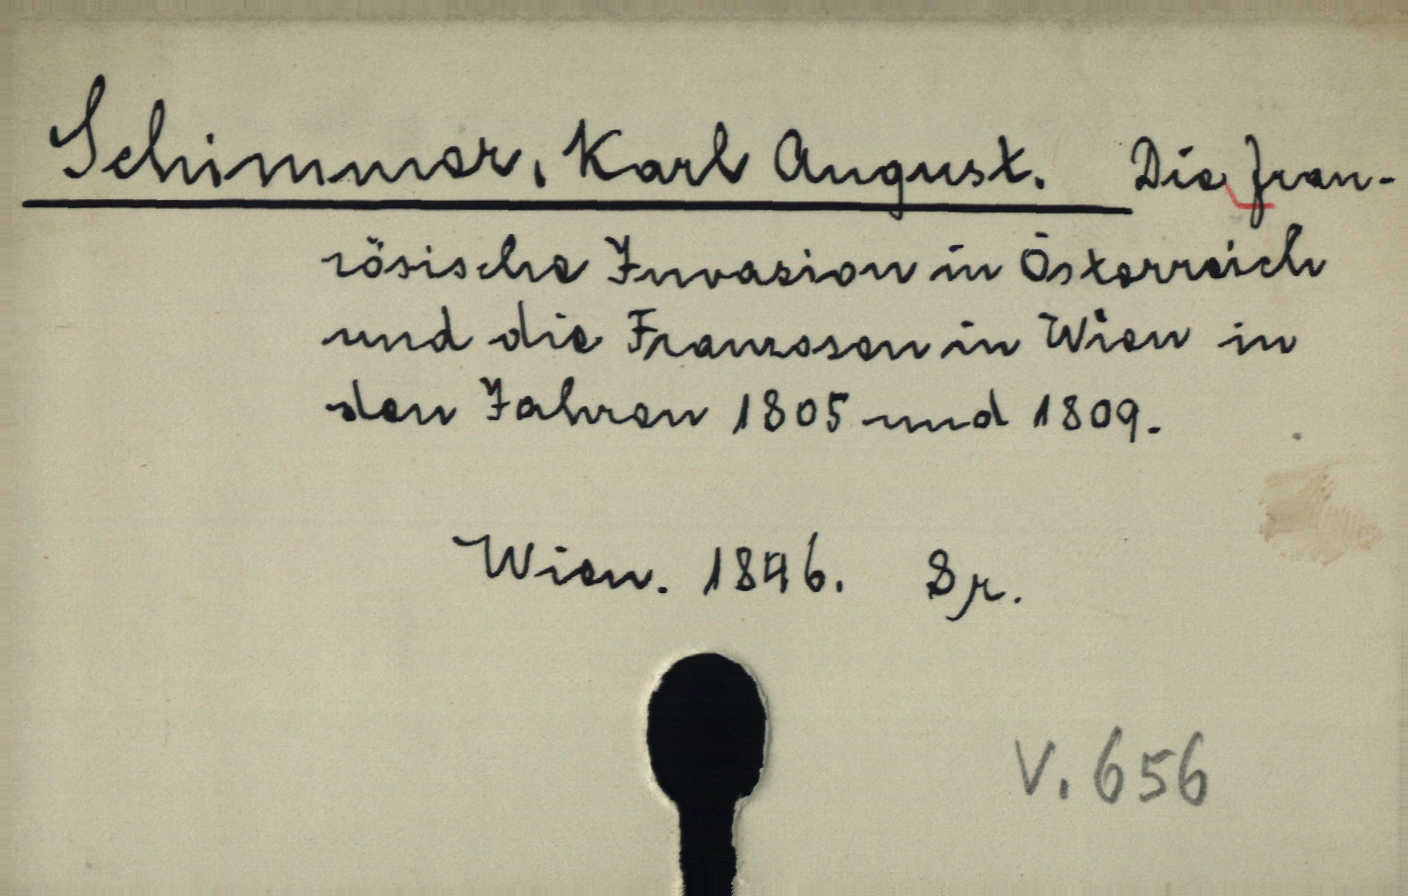 Schimmer, Karl August. Die fran-
zösische Invasion in Österreich
und die Franzosen in Wien in
den Jahren 1805 und 1809.
Wien. 1846. 8r.
V. 656